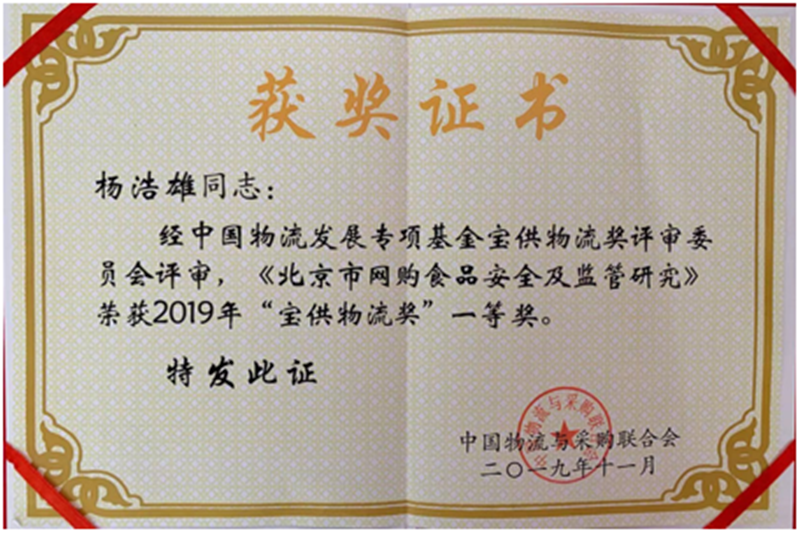 获奖证书
杨浩雄同志：
经中国物流发展专项基金宝供物流奖评审委
员会评审，《北京市网购食品安全及监管研究》
荣获2019年“宝供物流奖”一等奖。
特发此证
中国物流与采购联合会
二〇一九年十一月
中国物流与采购联合会